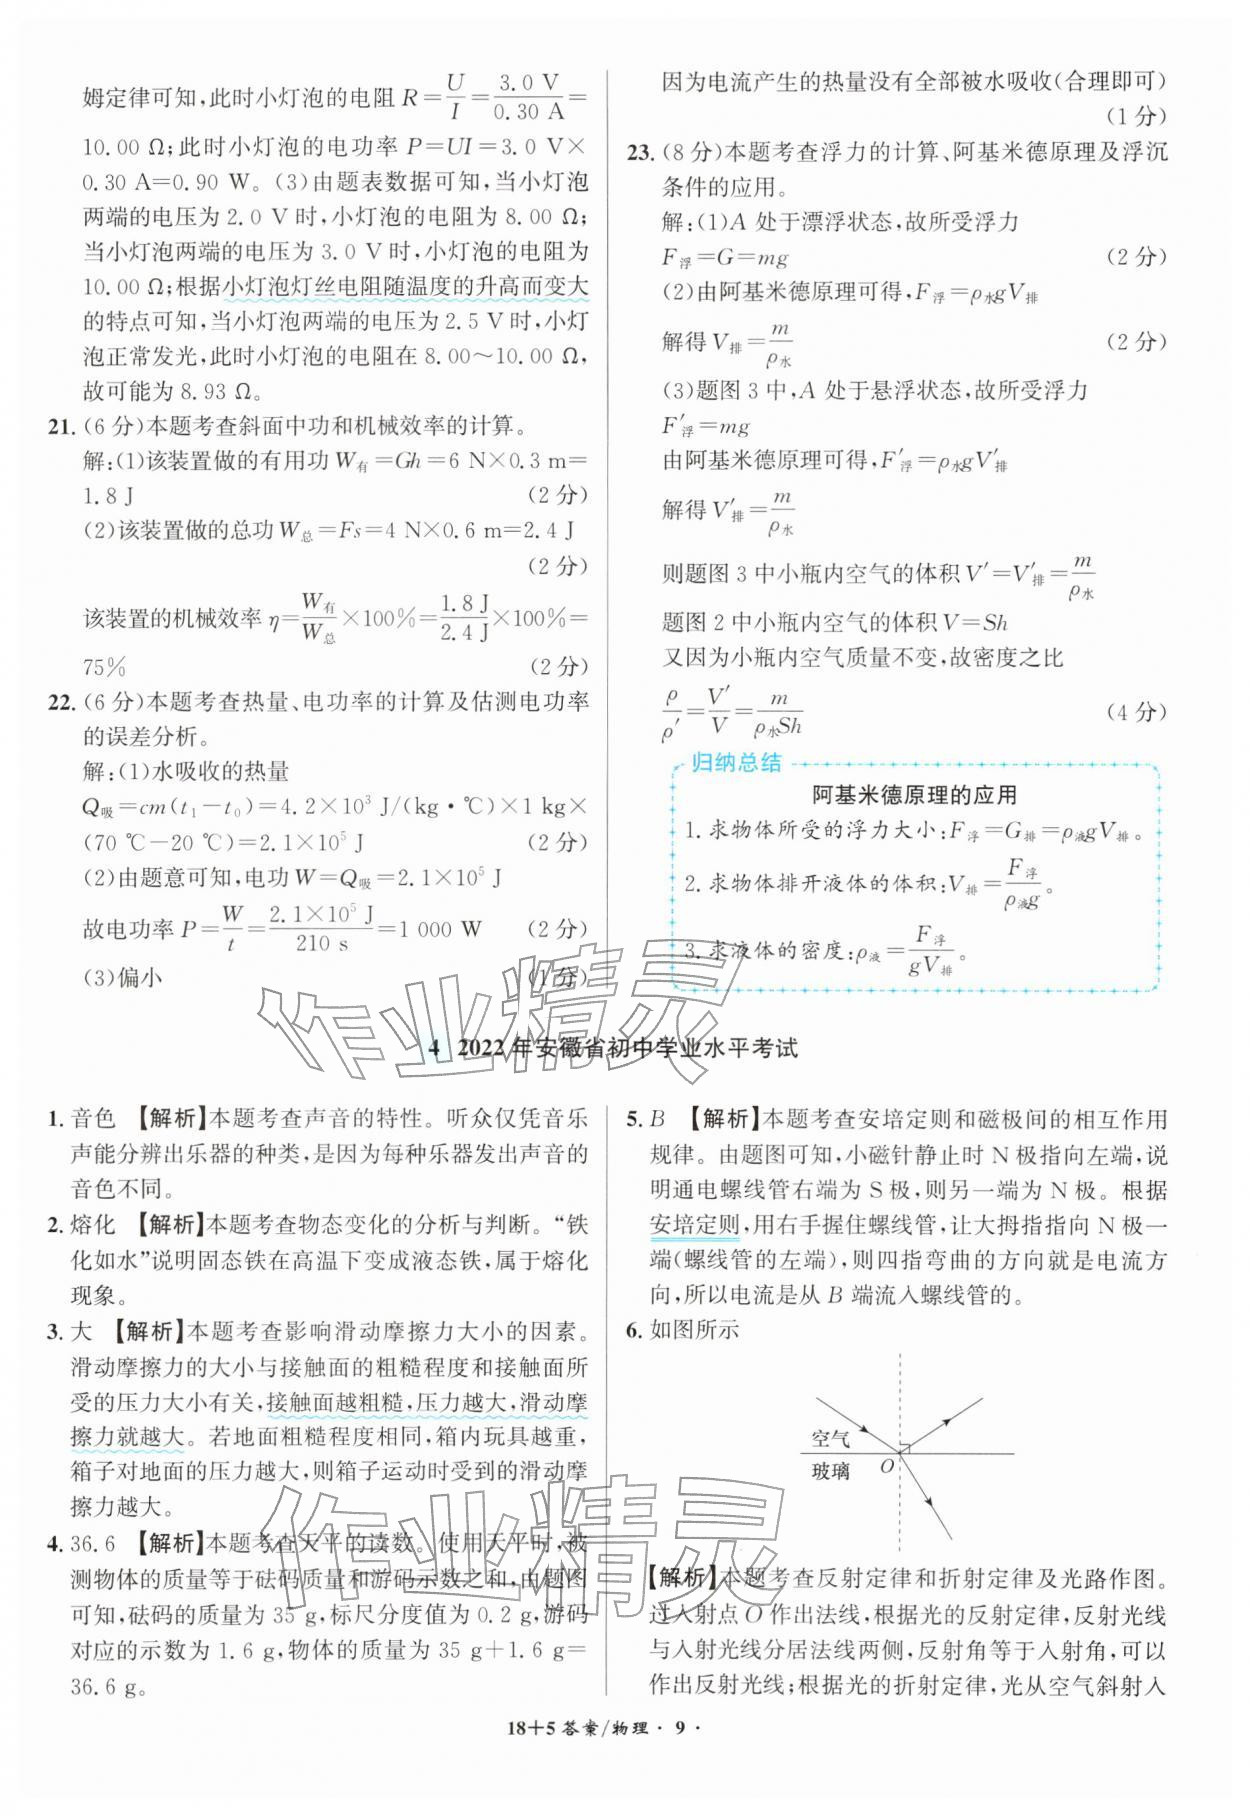 姆定律可知,此时小灯泡的电阻 R=U/I=3.0 V/0.30 A=
10.00 Ω;此时小灯泡的电功率 P=UI=3.0 V×
0.30 A=0.90 W。(3)由题表数据可知,当小灯泡
两端的电压为 2.0 V 时,小灯泡的电阻为 8.00 Ω;
当小灯泡两端的电压为 3.0 V 时,小灯泡的电阻为
10.00 Ω;根据小灯泡灯丝电阻随温度的升高而变大
的特点可知,当小灯泡两端的电压为 2.5 V 时,小灯
泡正常发光,此时小灯泡的电阻在 8.00～10.00 Ω,
故可能为 8.93 Ω。
21. (6 分)本题考查斜面中功和机械效率的计算。
解:(1)该装置做的有用功 W有=Gh=6 N×0.3 m=
1.8 J (2 分)
(2)该装置做的总功 W总=Fs=4 N×0.6 m=2.4 J
(2 分)
该装置的机械效率 η=W有/W总×100%=1.8 J/2.4 J×100%=
75% (2 分)
22. (6 分)本题考查热量、电功率的计算及估测电功率
的误差分析。
解:(1)水吸收的热量
Q吸=cm(t₁-t₀)=4.2×10³ J/(kg·℃)×1 kg×
(70 ℃-20 ℃)=2.1×10⁵ J (2 分)
(2)由题意可知,电功 W=Q吸=2.1×10⁵ J
故电功率 P=W/t=2.1×10⁵ J/210 s=1 000 W (2 分)
(3)偏小 (1 分)
因为电流产生的热量没有全部被水吸收(合理即可)
(1 分)
23. (8 分)本题考查浮力的计算、阿基米德原理及浮沉
条件的应用。
解:(1)A 处于漂浮状态,故所受浮力
F浮=G=mg (2 分)
(2)由阿基米德原理可得,F浮=ρ水gV排
解得 V排=m/ρ水 (2 分)
(3)题图 3 中,A 处于悬浮状态,故所受浮力
F′浮=mg
由阿基米德原理可得,F′浮=ρ水gV′排
解得 V′排=m/ρ水
则题图 3 中小瓶内空气的体积 V′=V′排=m/ρ水
题图 2 中小瓶内空气的体积 V=Sh
又因为小瓶内空气质量不变,故密度之比
ρ/ρ′=V′/V=m/ρ水Sh (4 分)
归纳总结
阿基米德原理的应用
1. 求物体所受的浮力大小:F浮=G排=ρ液gV排。
2. 求物体排开液体的体积:V排=F浮/ρ液g。
3. 求液体的密度:ρ液=F浮/gV排。
作业精灵
4 2022 年安徽省初中学业水平考试
1. 音色 【解析】本题考查声音的特性。听众仅凭音乐
声能分辨出乐器的种类,是因为每种乐器发出声音的
音色不同。
2. 熔化 【解析】本题考查物态变化的分析与判断。“铁
化如水”说明固态铁在高温下变成液态铁,属于熔化
现象。
3. 大 【解析】本题考查影响滑动摩擦力大小的因素。
滑动摩擦力的大小与接触面的粗糙程度和接触面所
受的压力大小有关,接触面越粗糙,压力越大,滑动摩
擦力就越大。若地面粗糙程度相同,箱内玩具越重,
箱子对地面的压力越大,则箱子运动时受到的滑动摩
擦力越大。
4. 36.6 【解析】本题考查天平的读数。使用天平时,被
测物体的质量等于砝码质量和游码示数之和,由题图
可知,砝码的质量为 35 g,标尺分度值为 0.2 g,游码
对应的示数为 1.6 g,物体的质量为 35 g+1.6 g=
36.6 g。
5. B 【解析】本题考查安培定则和磁极间的相互作用
规律。由题图可知,小磁针静止时 N 极指向左端,说
明通电螺线管右端为 S 极,则另一端为 N 极。根据
安培定则,用右手握住螺线管,让大拇指指向 N 极一
端(螺线管的左端),则四指弯曲的方向就是电流方
向,所以电流是从 B 端流入螺线管的。
6. 如图所示
空气
玻璃
O
【解析】本题考查反射定律和折射定律及光路作图。
过入射点 O 作出法线,根据光的反射定律,反射光线
与入射光线分居法线两侧,反射角等于入射角,可以
作出反射光线;根据光的折射定律,光从空气斜射入
作业精灵
18+5 答案/物理 · 9 ·